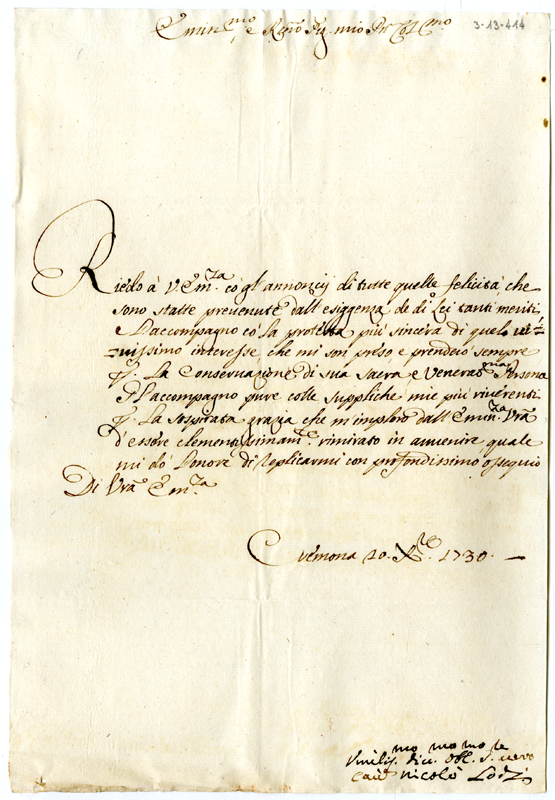 Emin.mo e R.mo Sig. mio Pr Col.mo
3-13-444
Riedo à V. Em.za co' gl'annonzij di tutte quelle felicità che
sono statte prevenute dall'esiggenza de di Lei tanti meriti,
e L'accompagno co' la protesta più sincera di quelo vi=
=vissimo interesse, che mi son preso e prenderò sempre
p. La Conservazione di sua Sacra e Venerat.ma Persona
Gl'accompagno pure colle suppliche mie più riverenti
p. La sospirata grazia che m'imploro dall'Emin.za Vra
d'essere clementissimam.e rimirato in avvenire quale
mi dò L'onore di replicarmi con profondissimo ossequio
Di Vra Em.za
Cremona 20. X.re 1730.
Umilis.mo div.mo obl.mo S.re vero
Cau.r Nicolò